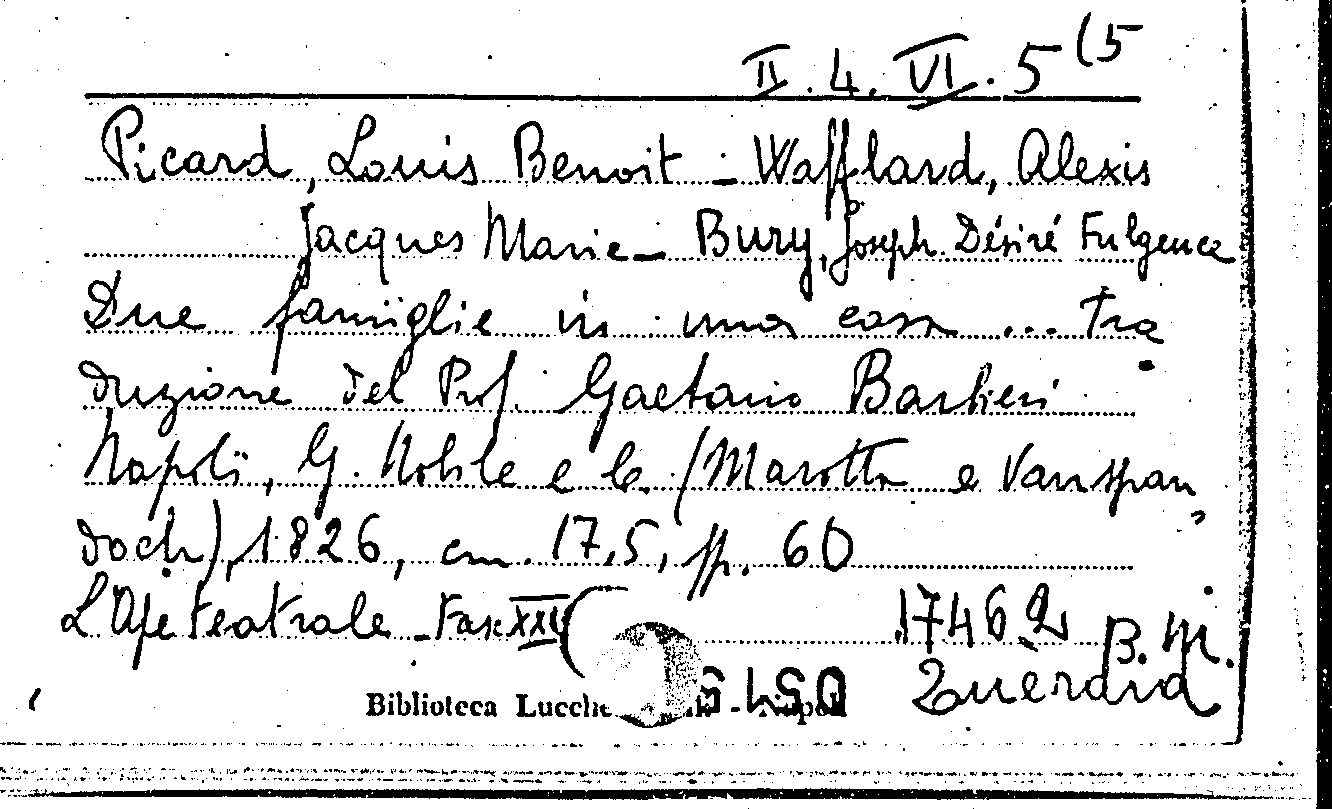 II. 4. VI. 5 (5
Picard, Louis Benoit - Wafflard, Alexis
Jacques Marie - Bury, Joseph Désiré Fulgence
Due famiglie in una casa ... Tra
duzione del Prof. Gaetano Barbieri
Napoli, G. Nobile e C. (Marotta e Vanspan,
doch), 1826, cm. 17,5, pp. 60
L'Ape teatrale - Fasc. XXI (
17462 B. M.
Biblioteca Lucche - Napoli